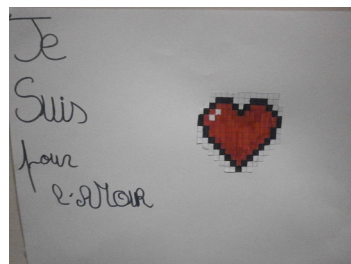 Je
Suis
pour
l'AMOUR